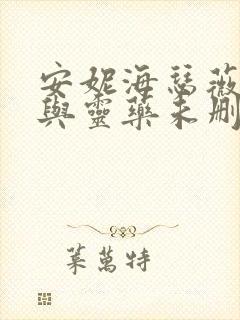 安妮海瑟薇
與靈藥未刪
葉萬特